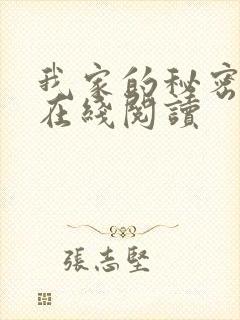 我家的秘密
在綫閱讀
張志堅